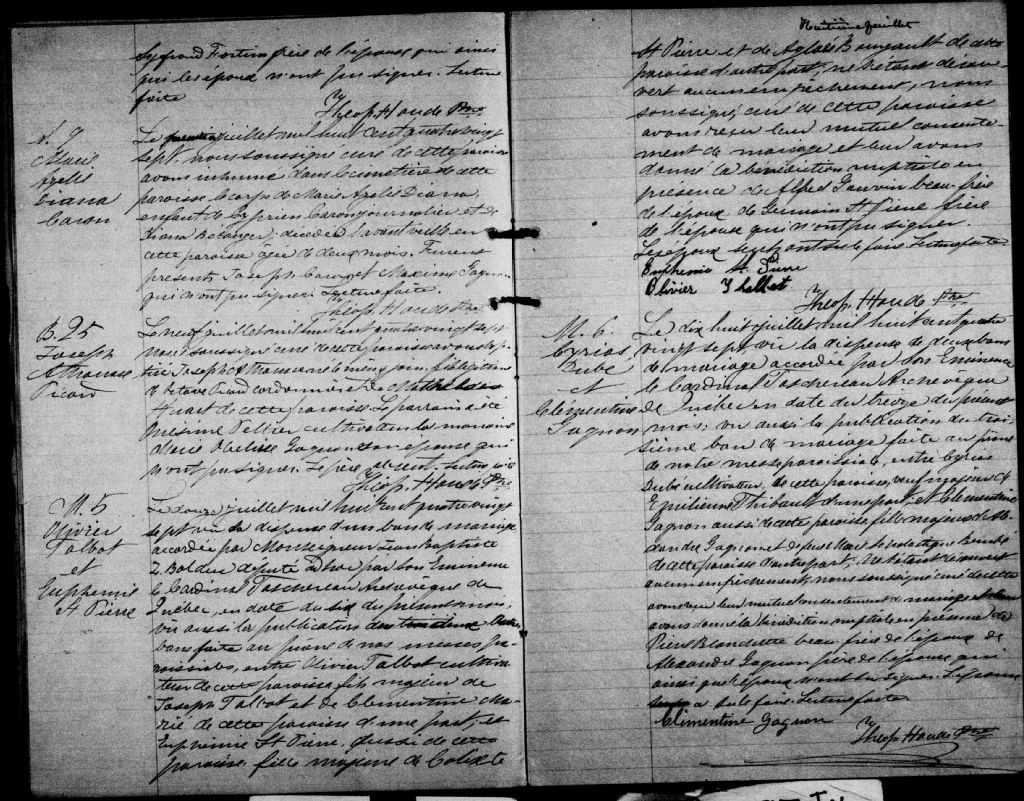 frère de l'épouse qui ainsi
que les époux n'ont pu signer. Lecture
faite
Theop. Houde Ptre
S. 7
Marie
Azelie
Diana
Caron
Le juillet mil huit cent quatre vingt
sept, nous soussigné curé de cette paroisse
avons inhumé dans le cimetière de cette
paroisse le corps de Marie Azelie Diana
enfant de Cyprien Caron journalier et de
Diana Bélanger, décédée l'avant veille en
cette paroisse âgée de deux mois. Furent
présents Joseph Caron et Maxime Gagnon
qui n'ont pu signer. Lecture faite.
Theop. Houde Ptre
B. 25
Joseph
Athanase
Picard
Le neuf juillet mil huit cent quatre vingt sept
nous soussigné curé de cette paroisse avons bap-
tisé Joseph Athanase né le mêmejour, fils légitime
de Octave Picard cordonnier et de Mathilde
Huart de cette paroisse. Le parrain a été
Onésime Pelletier cultivateur la marraine
Marie Gagnon son épouse qui
n'ont pu signer. Le père absent. Lecture
Theop. Houde Ptre
M. 5
Olivier
Talbot
et
Euphemie
St Pierre
Le douze juillet mil huit cent quatre vingt
sept vu la dispense d'un ban de mariage
accordée par Monseigneur Jean Baptiste
Z. Bolduc député ad hoc par Son Eminence
le Cardinal Taschereau Archevêque de
Québec, en date du six du présent mois,
vu aussi la publication des
bans faite au prône de nos messes pa-
roissiales, entre Olivier Talbot cultiva-
teur de cette paroisse fils majeur de
Joseph Talbot et de Clementine Ma-
rié de cette paroisse d'une part, et
Euphémie St Pierre aussi de cette
paroisse fille majeure de Calixte
juillet
St Pierre et de Aglaée Boureault de cette
paroisse d'autre part, ne s'étant décou-
vert aucun empêchement, nous
soussigné, curé de cette paroisse
avons reçu leur mutuel consente-
ment de mariage et leur avons
donné la bénédiction nuptiale en
présence de Alfred Gauvin beau-frère
de l'époux de Germain St Pierre frère
de l'épouse qui n'ont pu signer.
Les époux seuls ont su le faire. Lecture faite
Euphemie St Pierre
Olivier Talbot
Theop. Houde Ptre
M. 6.
Cyrias
Dubé
et
Clémentine
Gagnon
Le dix huit juillet mil huit cent quatre
vingt sept vu la dispense de deux bans
de mariage accordée par Son Eminence
le Cardinal Taschereau Archevêque
de Québec en date du treize du présent
mois; vu aussi la publication du troi-
sième ban de mariage faite au prône
de notre messe paroissiale, entre Cyrias
Dubé cultivateur, de cette paroisse, veuf majeur de
Emilienne Thibault d'une part; et Clémentine
Gagnon aussi de cette paroisse fille majeure de Ale-
xandre Gagnon et de feue Marie Scholastique
de cette paroisse d'autre part; ne s'étant découvert
aucun empêchement, nous soussigné curé de cette
avons reçu leur mutuel consentement de mariage et leur
avons donné la bénédiction nuptiale en présence de
Pierre Blanchette beau frère de l'époux de
Alexandre Gagnon père de l'épouse qui
ainsi que l'époux n'ont pu signer. L'épouse
a su le faire. Lecture faite
Clémentine Gagnon
Theop. Houde Ptre